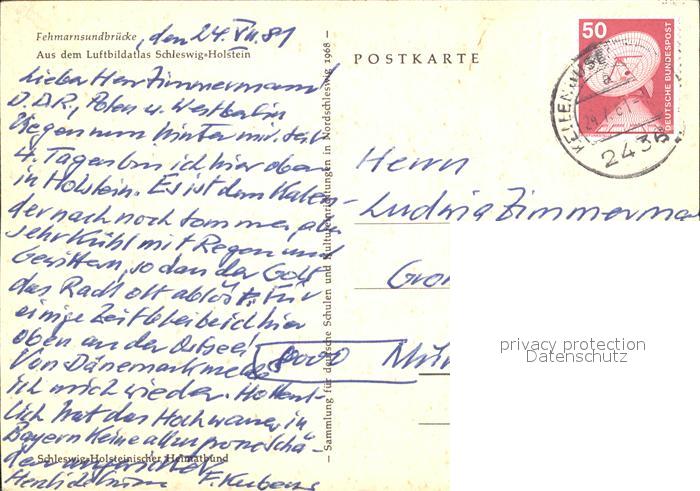 Fehmarnsundbrücke, den 24. VII. 81
Aus dem Luftbildatlas Schleswig-Holstein
Lieber Herr Zimmermann!
D.D.R., Polen u. Westberlin
liegen nun hinter mir. Seit
4 Tagen bin ich hier oben
in Holstein. Es ist dem Kalen-
der nach noch Sommer, aber
sehr kühl mit Regen und
Gewittern, so daß der Golf
das Radl oft ablöst. Für
einige Zeit bleibe ich hier
oben an der Ostsee!
Von Dänemark melde
ich mich wieder. Hoffent-
lich hat das Hochwasser in
Bayern keine allzu großen Schä-
den angerichtet
Schleswig-Holsteinischer Heimatbund
Herzlichst Ihr
F.
– Sammlung für deutsche Schulen und Kultureinrichtungen in Nordschleswig 1968 –
POSTKARTE
50
DEUTSCHE BUNDESPOST
KELLENHUSEN
a
2436
Herrn
Ludwig Zimmerma
8000 Mün
privacy protection
Datenschutz